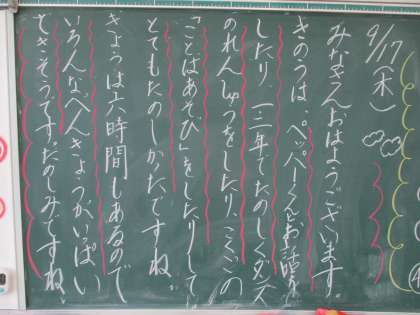 9/17(木)
みなさんおはようございます。
きのうは、ペッパーくんとお話を
したり、一二年でたのしくダンス
のれんしゅうをしたり、こくごの
「ことばあそび」をしたりして
とてもたのしかったですね。
きょうは六時間もあるので
いろんなべんきょうがいっぱい
できそうです。たのしみですね。